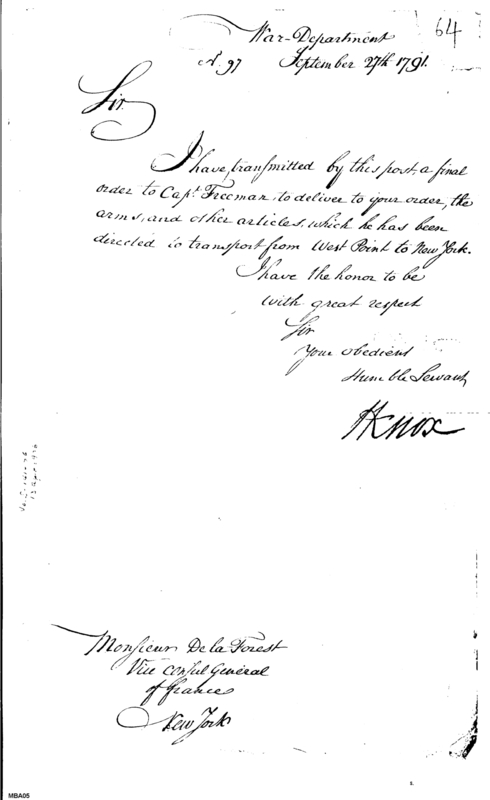 64
War-Department
N. 97 September 27th 1791.
Sir.
I have, transmitted by this post, a final
order to Capt. Freeman, to deliver to your order, the
arms, and other articles, which he has been
directed to transport from West Point to New York.
I have the honor to be
with great respect
Sir
Your obedient
Humble Servant,
HKnox
Monsieur De la Forest
Vice Consul General
of france
New York
MBA05